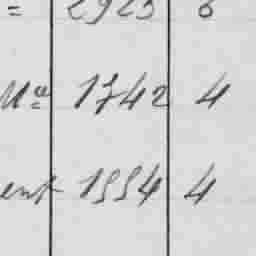 = 2923 6
Ma 1742 4
ent 1554 4